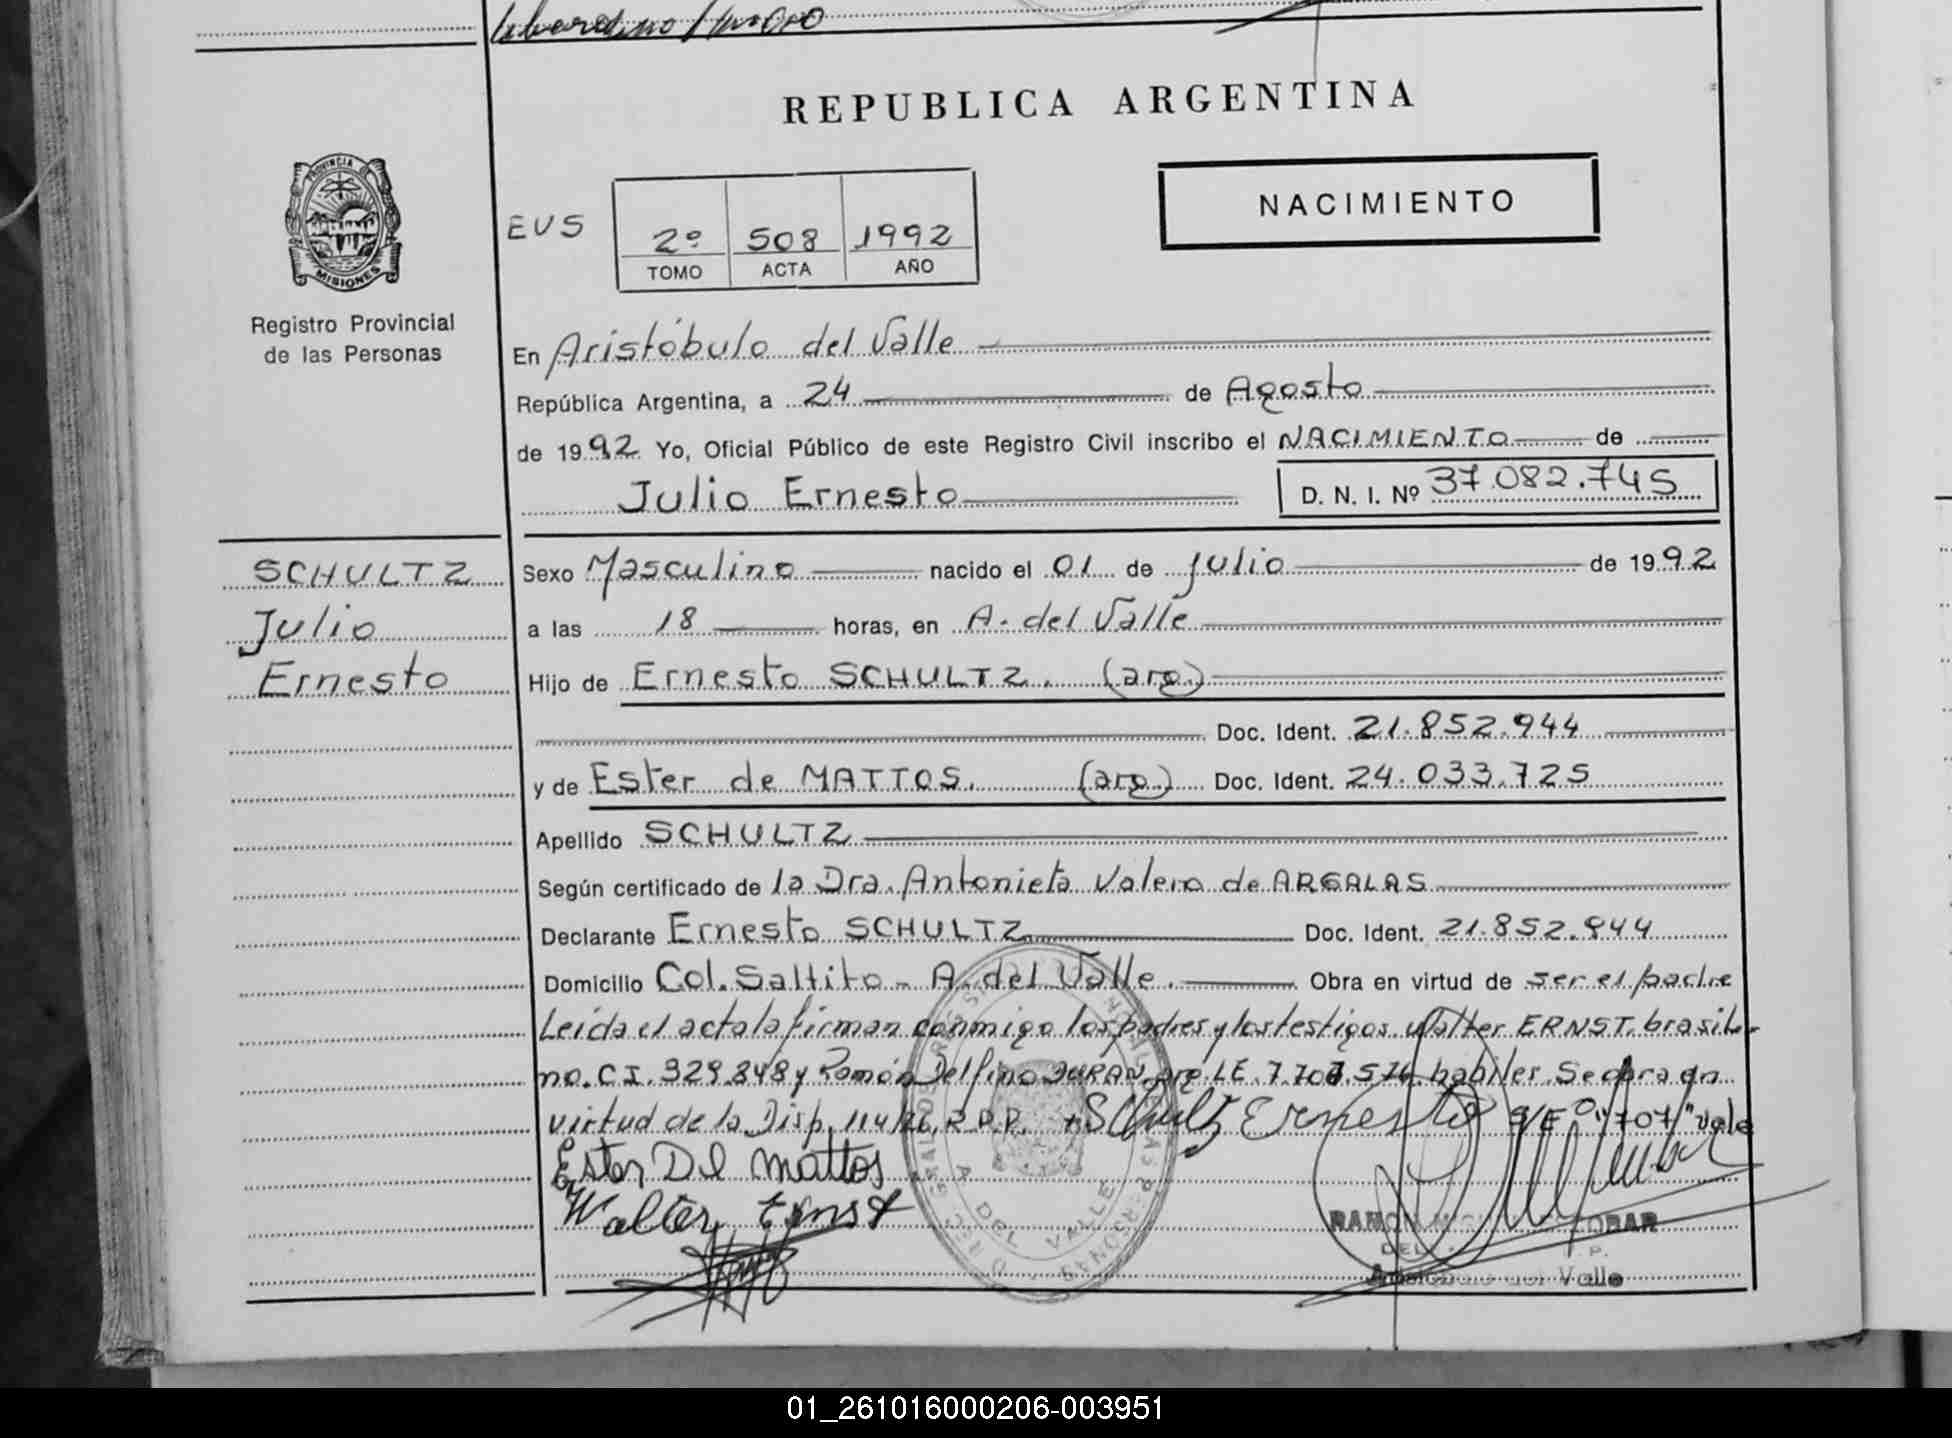 REPUBLICA ARGENTINA
PROVINCIA DE
MISIONES
Registro Provincial
de las Personas
EUS
2º 508 1992
TOMO ACTA AÑO
NACIMIENTO
En Aristóbulo del Valle
República Argentina, a 24 de Agosto
de 1992 Yo, Oficial Público de este Registro Civil inscribo el NACIMIENTO de
Julio Ernesto D. N. I. Nº 37.082.745
SCHULTZ
Julio
Ernesto
Sexo Masculino nacido el 01 de julio de 1992
a las 18 horas, en A. del Valle
Hijo de Ernesto SCHULTZ. (arg.)
Doc. Ident. 21.852.944
y de Ester de MATTOS. (arg.) Doc. Ident. 24.033.725
Apellido SCHULTZ
Según certificado de la Dra. Antonieta Valero de ARGALAS
Declarante Ernesto SCHULTZ Doc. Ident. 21.852.944
Domicilio Col. Saltito - A. del Valle. Obra en virtud de ser el padre
Leída el acta la firman conmigo los padres y los testigos Walter ERNST, brasile-
no. C.I. 329.848 y Ramón Delfino DURAN, arg LE. 7.707.576 habiles. Se obra en
virtud de la Disp. 114/86, R.P.P. Schultz Ernesto S/E "707" vale
Ester De mattos
Walter Ernst
A DEL VALLE
Aristobulo del Valle
01_261016000206-003951